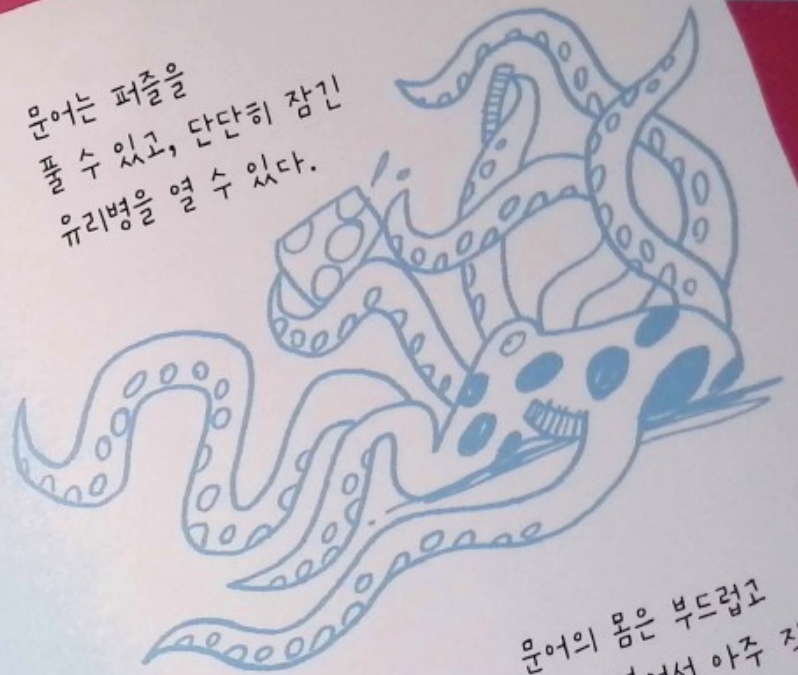 문어는 퍼즐을
풀 수 있고, 단단히 잠긴
유리병을 열 수 있다.
문어의 몸은 부드럽고
아주